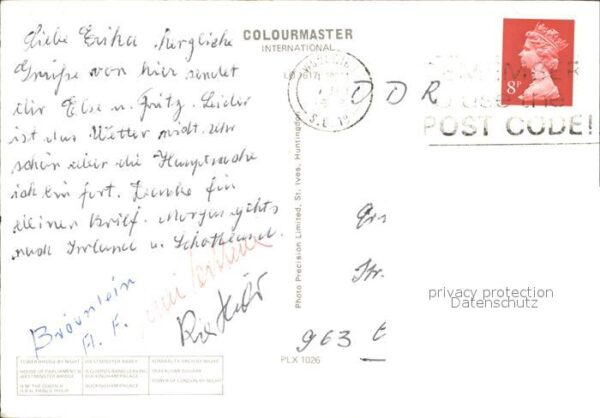 Liebe Erika herzliche
Grüße von hier sendet
dir Else u. Fritz. Leider
ist das Wetter nicht sehr
schön aber die Hauptsache
ich bin fort. Danke für
deinen Brief. Morgen gehts
nach Irland u. Schottland.
Bräunlein
A. F.
COLOURMASTER
INTERNATIONAL
Photo Precision Limited, St. Ives, Huntingdon
PLX 1026
TOWER BRIDGE BY NIGHT
WESTMINSTER ABBEY
HOUSE OF PARLIAMENT &
WESTMINSTER BRIDGE
BUCKINGHAM PALACE
TRAFALGAR SQUARE
TOWER OF LONDON BY NIGHT
H.M. THE QUEEN &
H.R.H. PRINCE PHILIP
BUCKINGHAM PALACE
8P
S.E.1
REMEMBER
to use the
POST CODE!
DDR
Str.
privacy protection
Datenschutz
963